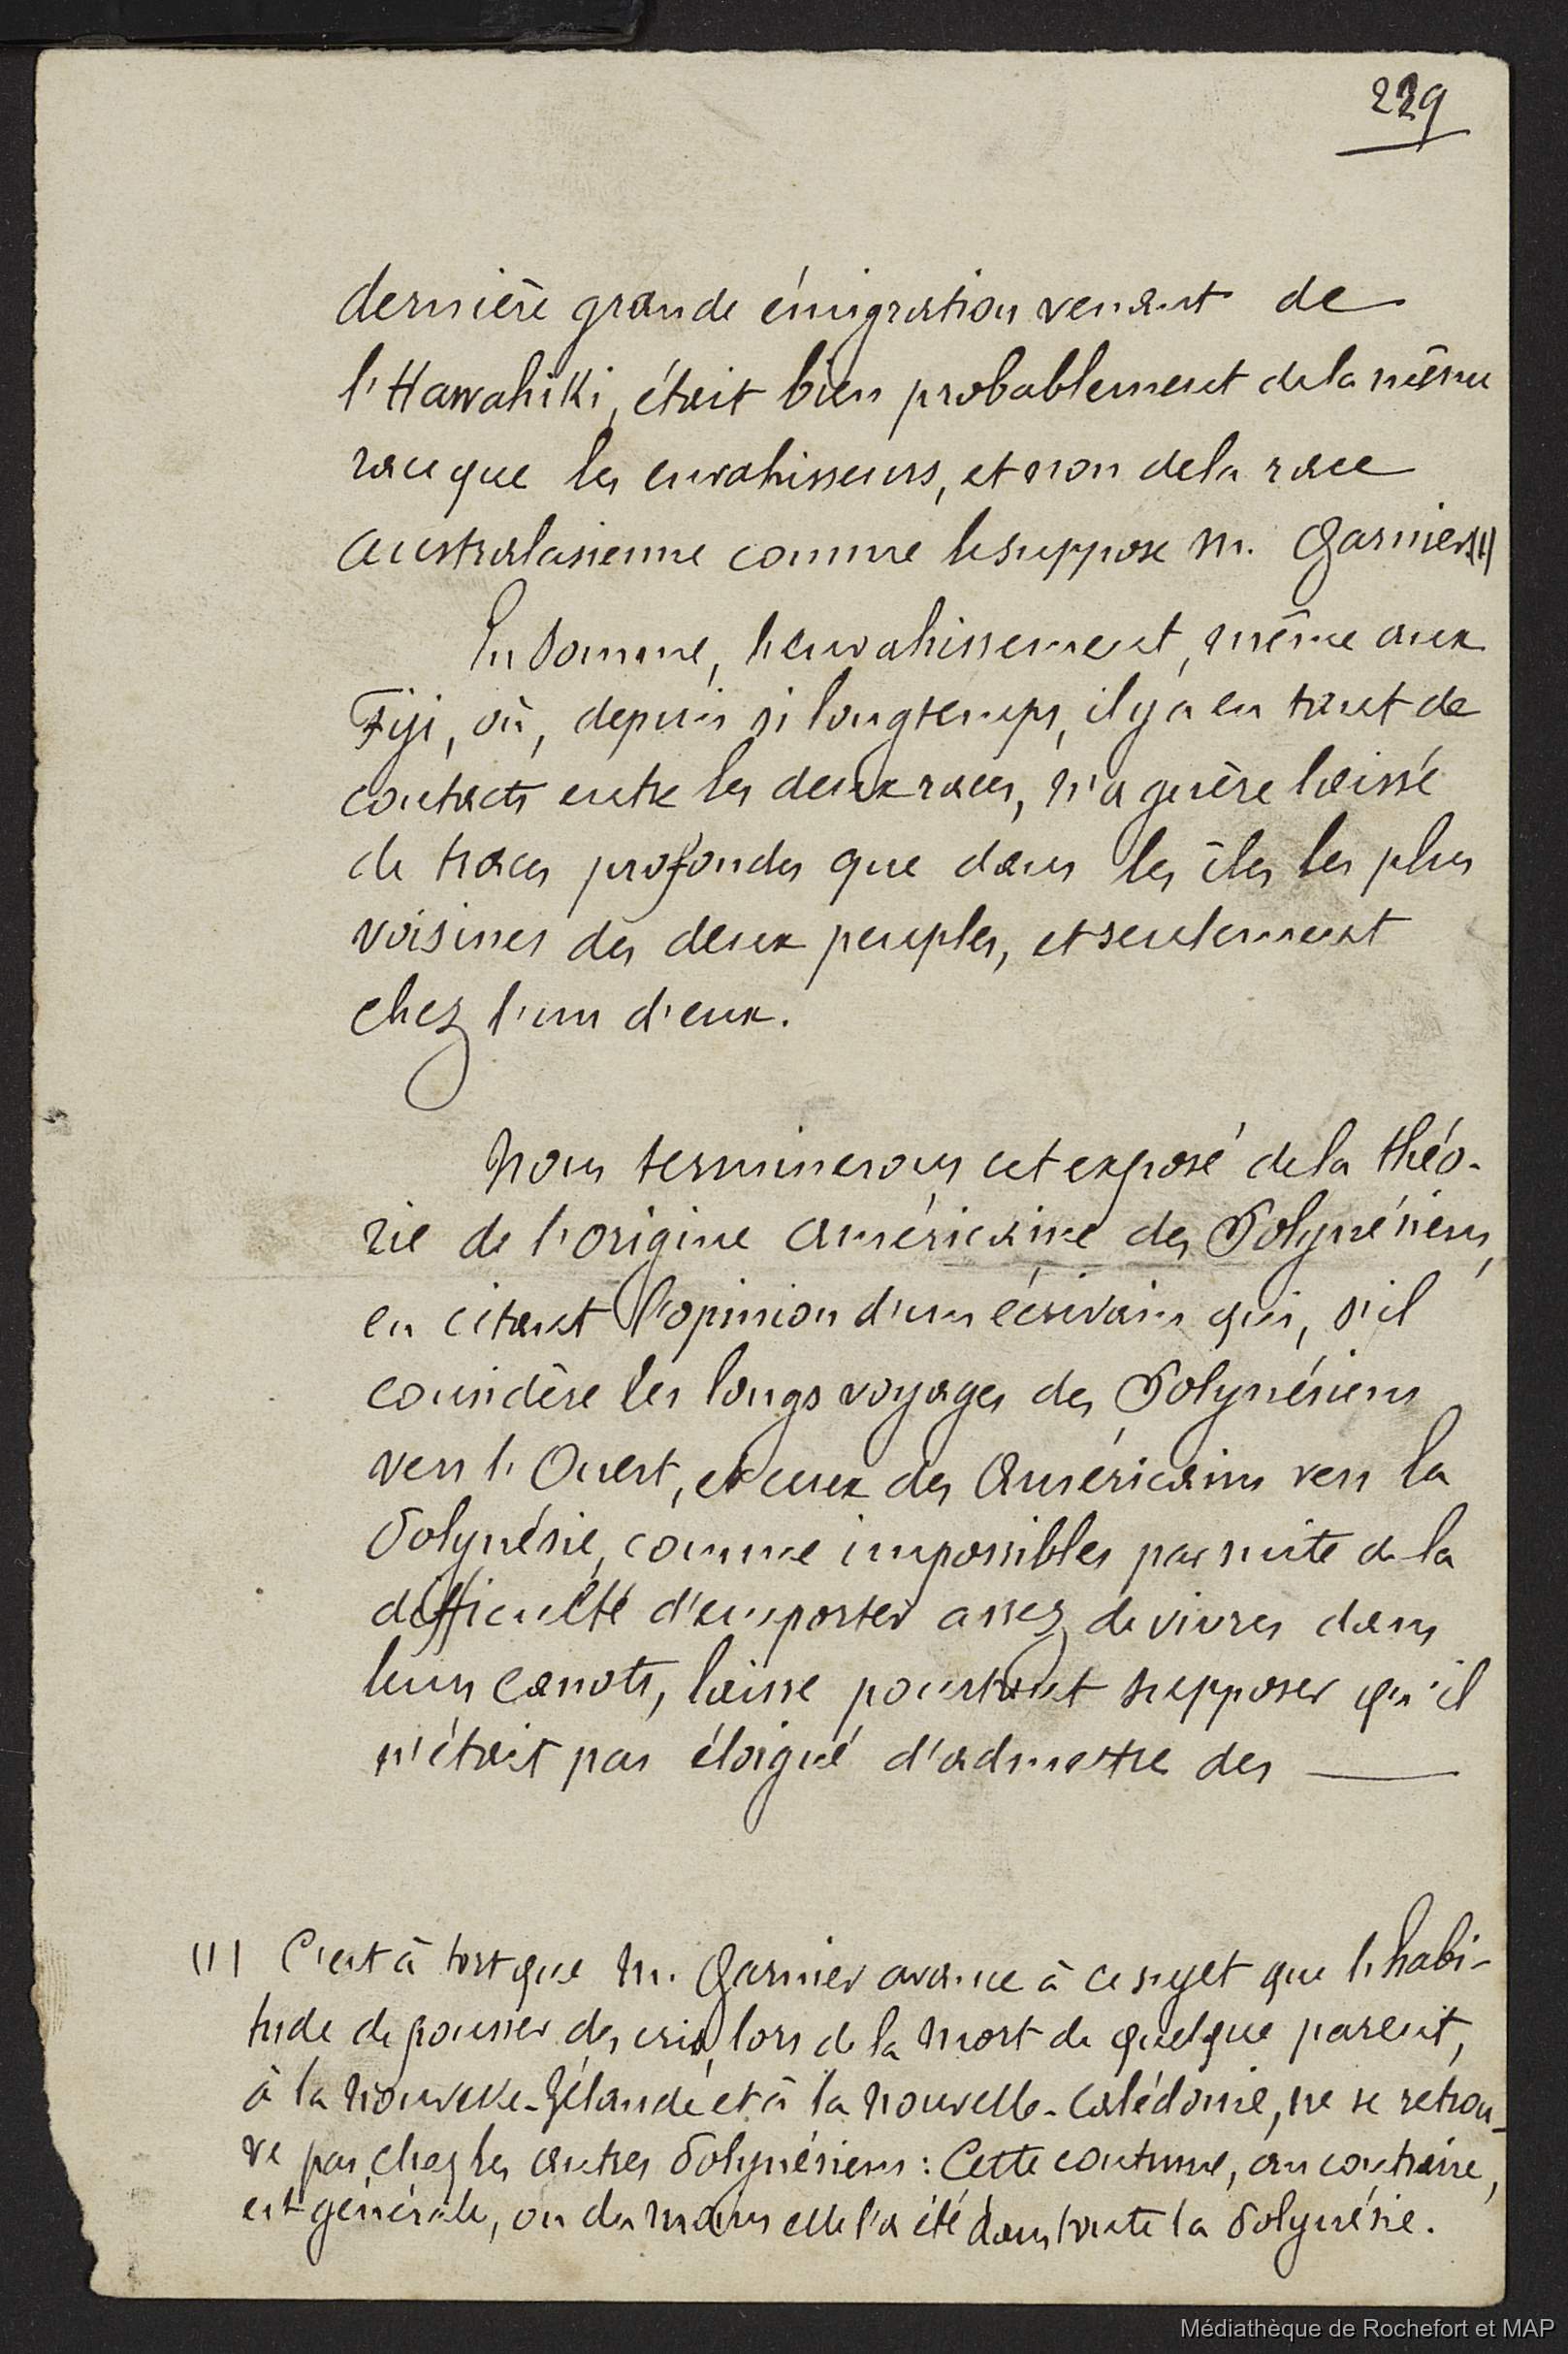 229
dernière grande émigration venant de
l'Hawahiki, était bien probablement de la même
race que les envahisseurs, et non de la race
australasienne comme le suppose M. Garnier.(1)
En somme, l'envahissement, même aux
Fiji, où, depuis si longtemps, il y a eu tant de
contacts entre les deux races, n'a guère laissé
de traces profondes que dans les îles les plus
voisines des deux peuples, et seulement
chez l'un d'eux.
Nous terminerons cet exposé de la théo-
rie de l'origine américaine des Polynésiens,
en citant l'opinion d'un écrivain qui, s'il
considère les longs voyages des Polynésiens
vers l'Ouest, et ceux des Américains vers la
Polynésie, comme impossibles par suite de la
difficulté d'emporter assez de vivres dans
leurs canots, laisse pourtant supposer qu'il
n'était pas éloigné d'admettre des
(1) C'est à tort que M. Garnier avance à ce sujet que l'habi-
tude de pousser des cris, lors de la mort de quelque parent,
à la Nouvelle-Zélande et à la Nouvelle-Calédonie, ne se retrou-
ve pas chez les autres Polynésiens : Cette coutume, au contraire,
est générale, ou du moins elle l'a été dans toute la Polynésie.
Médiathèque de Rochefort et MAP